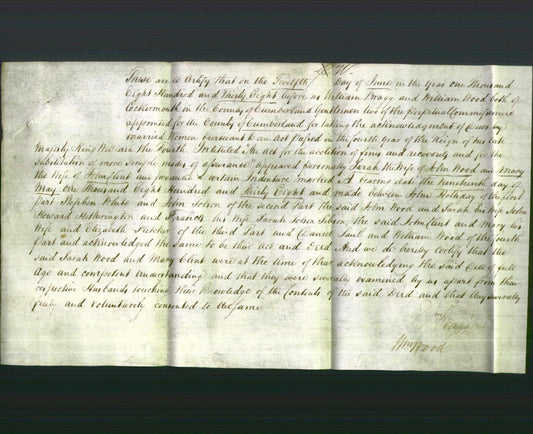 These are to Certify that on the Twelfth Day of June in the year one Thousand
Eight Hundred and Thirty Eight before us William Bragg and William Wood both of
Cockermouth in the County of Cumberland Gentlemen two of the Perpetual Commissioners
appointed for the County of Cumberland for taking the acknowledgment of Deeds by
Married Women pursuant to an Act Passed in the fourth year of the Reign of his late
Majesty King William the Fourth Intituled "An Act for the abolition of fines and recoveries and for the
substitution of more simple modes of assurance" appeared Personally Sarah the Wife of John Wood and Mary
the Wife of John Clint and produced a certain Indenture marked A bearing date the Nineteenth day of
May One Thousand Eight Hundred and Thirty Eight and made between John Holliday of the first
Part Stephen White and John Tolson of the second Part the said John Wood and Sarah his Wife John
Howard Hetherington and his Wife Sarah Tolson the said John Clint and Mary his
Wife and Elizabeth Fletcher of the third Part and Daniel and William Wood of the fourth
Part and acknowledged the same to be their Act and Deed And we do hereby certify that the
said Sarah Wood and Mary Clint were at the time of their acknowledging the said Deed of full
Age and competent Understanding and that they were severally examined by us apart from their
respective Husbands touching their knowledge of the Contents of the said Deed and that they severally
freely and voluntarily consented to the same
Wm
Bragg
Wm Wood